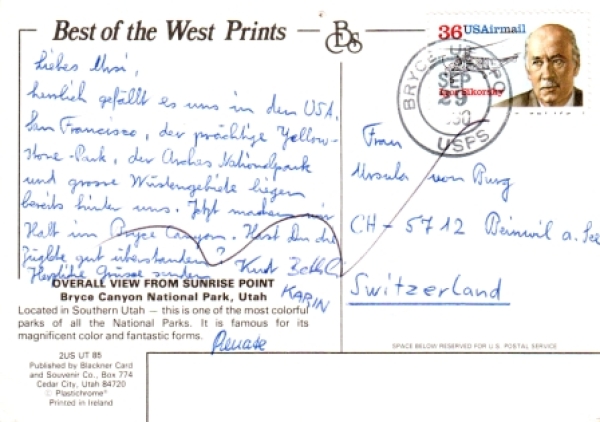 Best of the West Prints
BCDS
36 USAirmail
Igor Sikorsky
BRYCE
US
SEP
29
PO
USPS
Liebes Ursi,
herrlich gefällt es uns in den USA.
San Francisco, der prächtige Yellow-
stone-Park, der Arches Nationalpark
und grosse Wüstengebiete liegen
bereits hinter uns. Jetzt machen wir
Halt im Bryce Canyon. Hast Du die
Züglete gut überstanden?
Herzliche Grüsse senden Kurt
KARIN
Renate
Frau
Ursula von Burg
CH-5712 Beinwil a. See
Switzerland
OVERALL VIEW FROM SUNRISE POINT
Bryce Canyon National Park, Utah
Located in Southern Utah — this is one of the most colorful
parks of all the National Parks. It is famous for its
magnificent color and fantastic forms.
2US UT 85
Published by Blackner Card
and Souvenir Co., Box 774
Cedar City, Utah 84720
© Plastichrome®
Printed in Ireland
SPACE BELOW RESERVED FOR U.S. POSTAL SERVICE